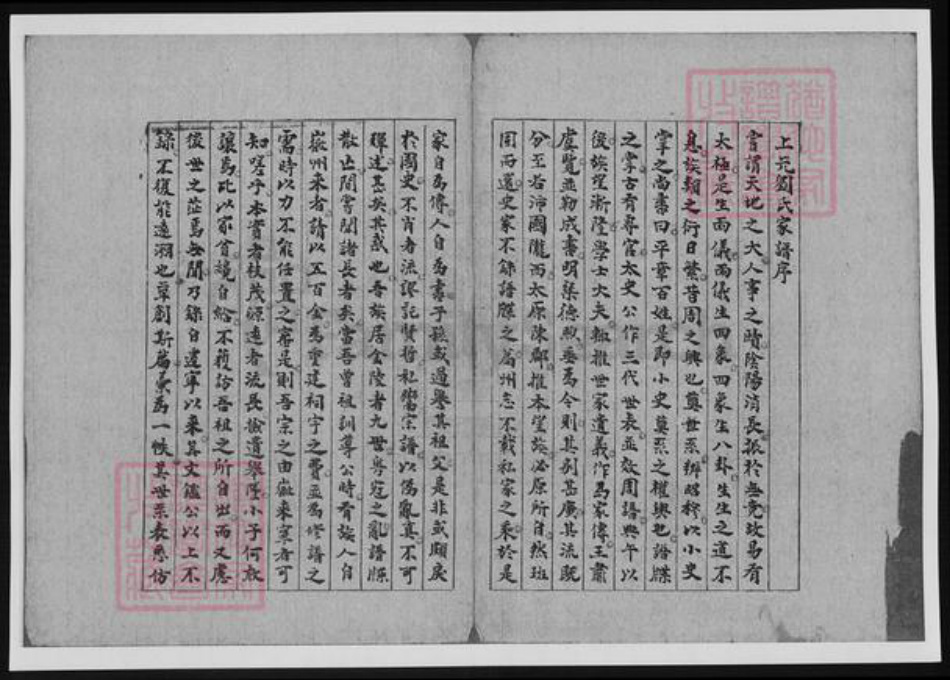 上元劉氏家譜序
嘗謂天地之大人事之賾陰陽消長振於無竟故易有
太極是生兩儀兩儀生四象四象生八卦生生之道不
息族類之衍日繁昔周之興也奠世系辨昭穆以小史
掌之尚書曰平章百姓是即小史奠系之權輿也譜牒
之掌古有專官太史公作三代世表並效周譜典午以
後族望漸隆學士大夫輒推世家遺義作為家傳王肅
虞覽並勒成書明粲德煦垂為令則其別甚廣其流既
分至若沛國隴西太原陳鄭推本望族必原所自然班
固而還史家不錄譜牒之篇州志不載私家之乘於是
家自為傳人自為書子孫或過譽其祖父是非或頗戾
於國史不肖者流謬託賢哲私鬻宗譜以偽亂真不可
殫述甚矣其惑也吾族居金陵者九世粵寇之亂譜牒
散亡間嘗聞諸長者矣當吾曾祖訓尊公時有族人自
徽州來者請以五百金為重建祠宇之費並為修譜之
需時以力不能任置之審是則吾宗之由徽來寧者可
知嗟乎本實者枝茂源遠者流長搜遺舉墜小子何敢
讓焉比以家貧境自給不獲訪吾祖之所自出而又慮
後世之茫焉無聞乃錄自遷寧以來其文鑑公以上不
錄不復能遠溯也草創斯篇彙為一帙其世系表悉仿